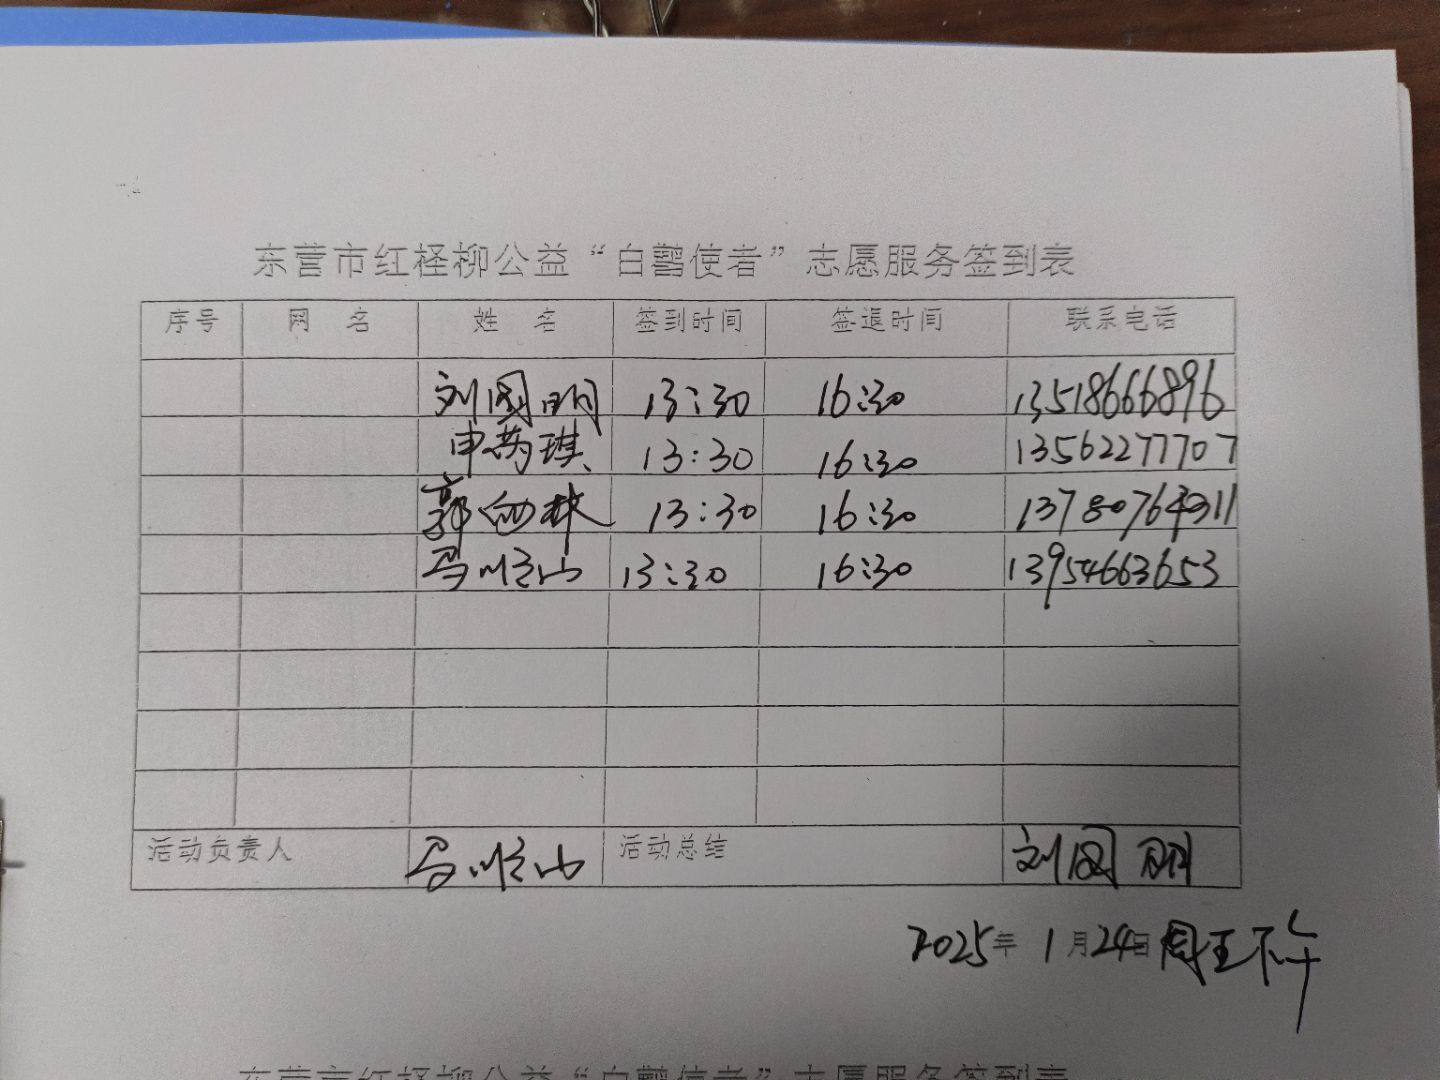 东营市红柽柳公益“白鹳使者”志愿服务签到表
序号 网 名 姓 名 签到时间 签退时间 联系电话
刘国明 13:30 16:30 13518666896
申芮琪 13:30 16:30 13562277707
郭 林 13:30 16:30
马顺山 13:30 16:30 13954663653
活动负责人 马顺山 活动总结 刘国明
2025年 1月24日周五下午
东营市红柽柳公益“白鹳使者”志愿服务签到表